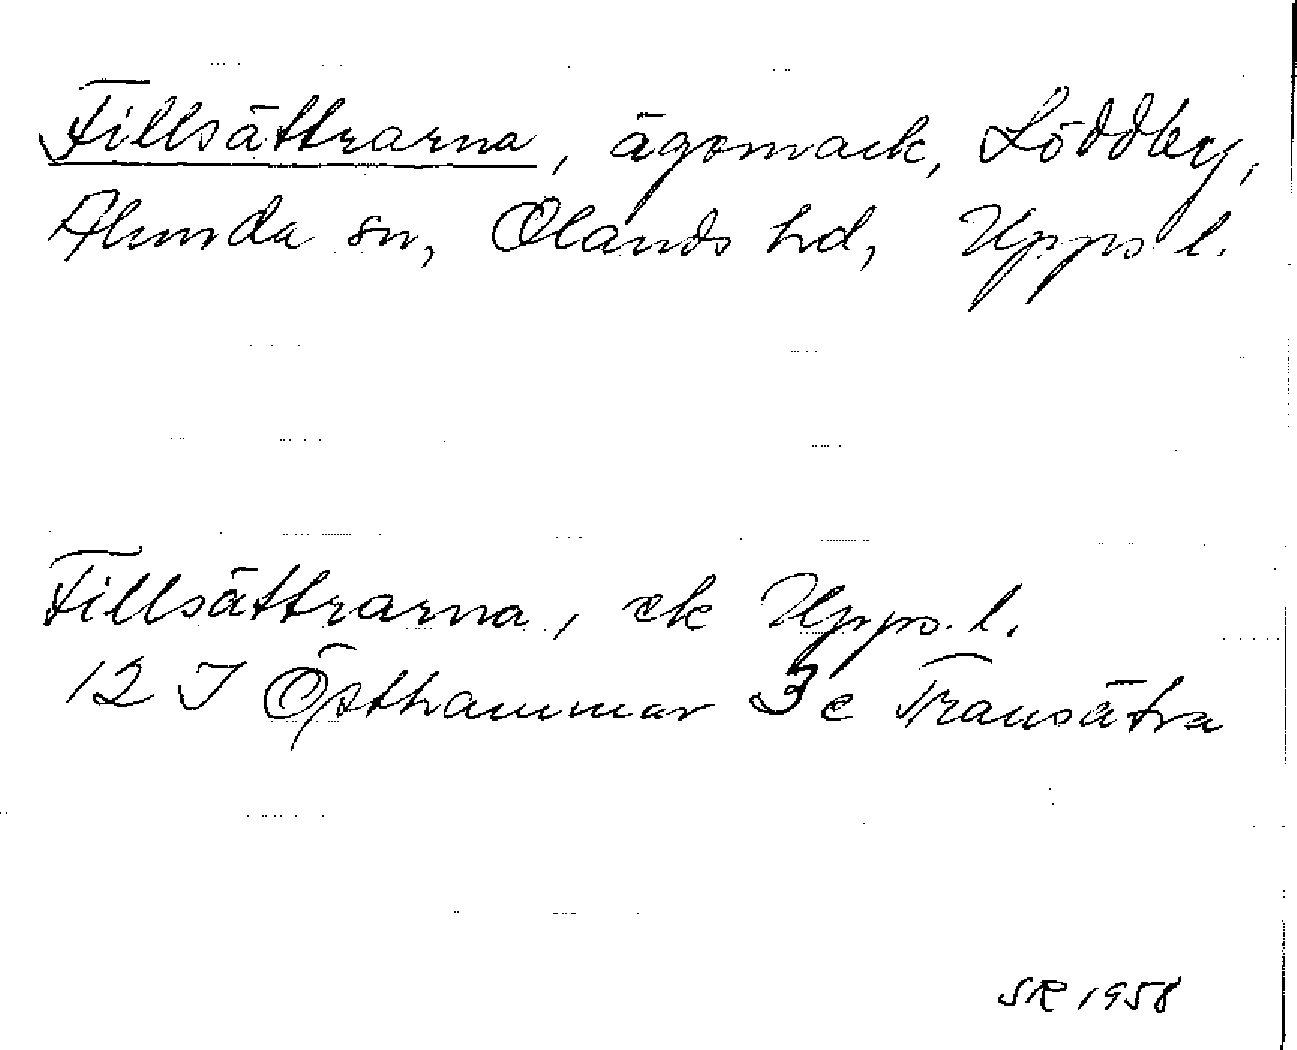 Tillsättrarna, ägomark, Löddby,
Alunda sn, Olands hd, Upps l.
Tillsättrarna, ek Upps. l.
12 I Östhammar 3 c Transätra
SR 1958